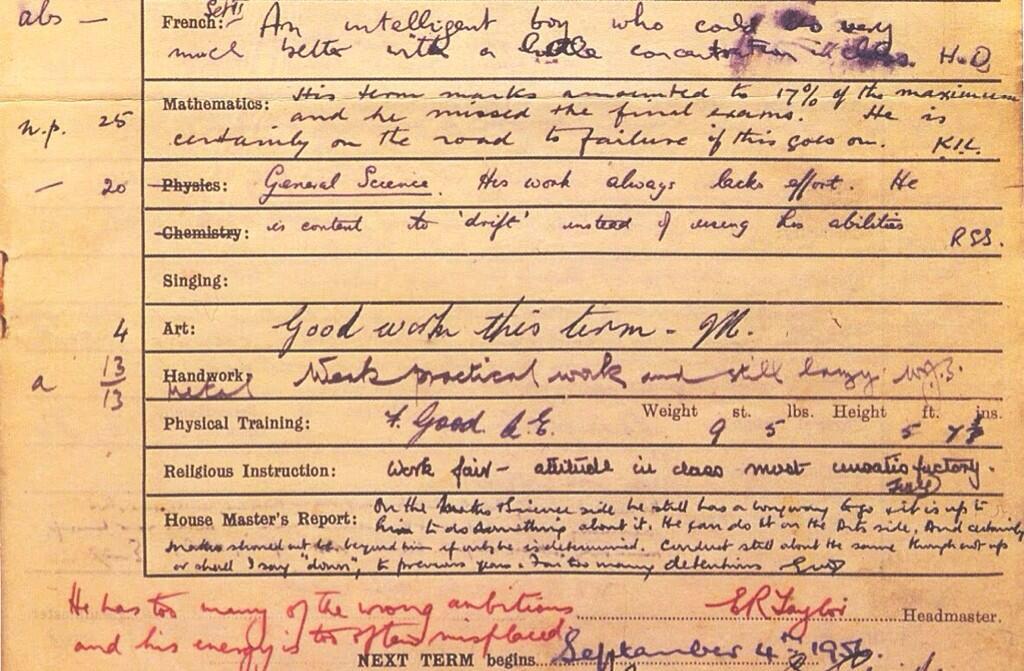 abs —
French: An intelligent boy who could do very
much better with a little concentration in class. H.D
Mathematics: His term marks amounted to 17% of the maximum
n.p. 25 and he missed the final exams. He is
certainly on the road to failure if this goes on.
— 20 Physics: General Science. His work always lacks effort. He
Chemistry: is content to 'drift' instead of using his abilities
RSS.
Singing:
4 Art: Good work this term - 
a 13/13 Handwork: Weak practical work and still lazy.
Metal
Physical Training: F. Good. Weight 9 st. 5 lbs. Height 5 ft. 7½ ins.
Religious Instruction: Work fair — attitude in class most unsatisfactory.
House Master's Report: On the Maths & Science side he still has a long way to go & it is up to
him to do something about it. He can do it on the Arts side. And certainly
Maths should not be beyond him if only he is determined. Conduct still about the same though not up
or shall I say "down", to previous years. Far too many detentions
He has too many of the wrong ambitions E R Taylor Headmaster.
and his energy is too often misplaced
NEXT TERM begins September 4th 1956.